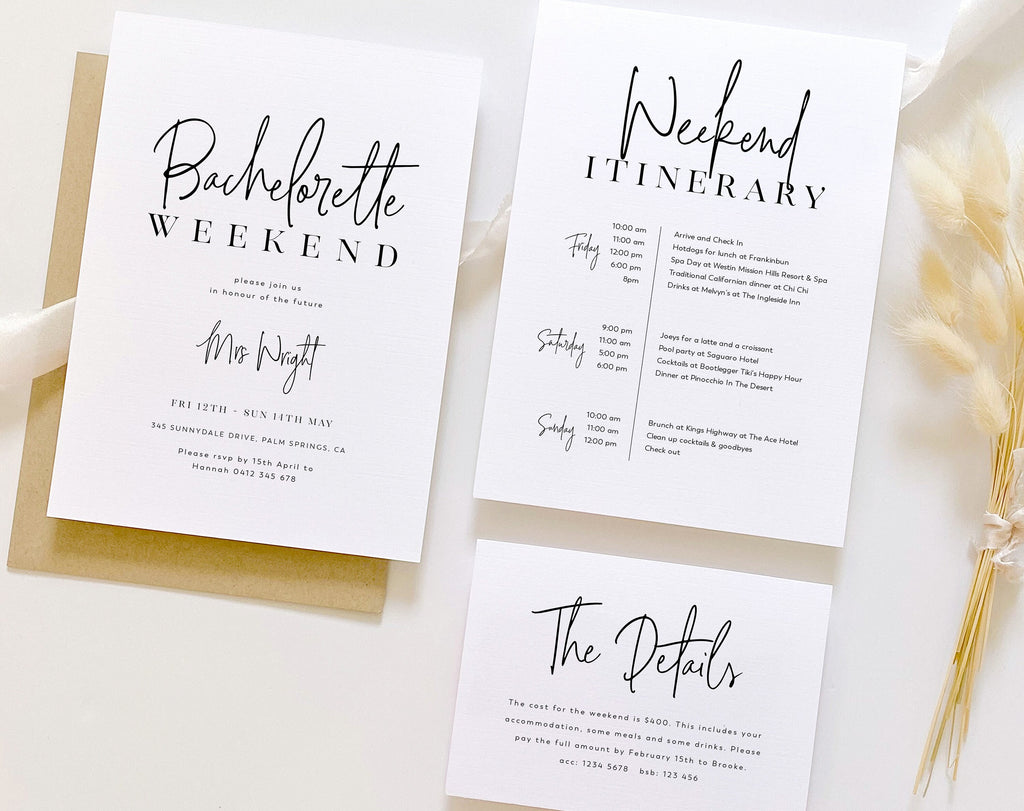 Bachelorette
WEEKEND
please join us
in honour of the future
Mrs Wright
FRI 12TH - SUN 14TH MAY
345 SUNNYDALE DRIVE, PALM SPRINGS, CA
Please rsvp by 15th April to
Hannah 0412 345 678
Weekend
ITINERARY
Friday
10:00 am Arrive and Check In
11:00 am Hotdogs for lunch at Frankinbun
12:00 pm Spa Day at Westin Mission Hills Resort & Spa
6:00 pm Traditional Californian dinner at Chi Chi
8pm Drinks at Melvyn's at The Ingleside Inn
Saturday
9:00 pm Joeys for a latte and a croissant
11:00 am Pool party at Saguaro Hotel
5:00 pm Cocktails at Bootlegger Tiki's Happy Hour
6:00 pm Dinner at Pinocchio In The Desert
Sunday
10:00 am Brunch at Kings Highway at The Ace Hotel
11:00 am Clean up cocktails & goodbyes
12:00 pm Check out
The Details
The cost for the weekend is $400. This includes your
accommodation, some meals and some drinks. Please
pay the full amount by February 15th to Brooke.
acc: 1234 5678 bsb: 123 456